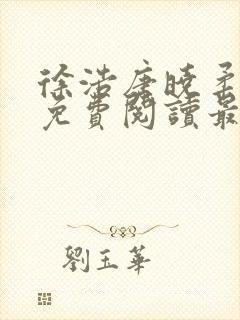 徐浩唐曉柔
免費閱讀最
劉玉華